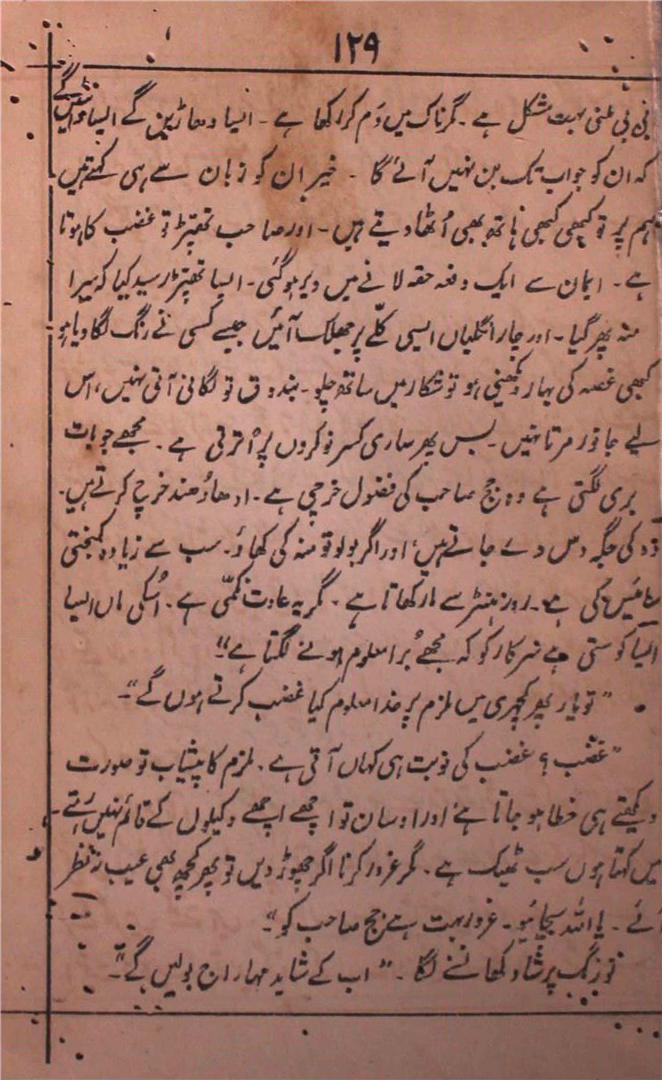 ۱۲۹
بی بی غنی بہت مشکل ہے۔ گرناک میں دَم کر رکھا ہے۔ ایسا دھاڑیں گے ایسا ڈانٹیں گے
کہ ان کو جواب تک بن نہیں آئے گا۔ خیر ان کو زبان سے ہی کہتے ہیں
ہم پر تو کبھی کبھی ہاتھ بھی اُٹھا دیتے ہیں۔ اور صاحب تھپڑ تو غضب کا ہوتا
ہے۔ ایمان سے ایک دفعہ حقہ لانے میں دیر ہو گئی۔ ایسا تھپڑ رسید کیا کہ میرا
منہ پھر گیا۔ اور چار انگلیاں ایسی کلّے پر جھلک آئیں جیسے کسی نے رنگ لگا دیا ہو
کبھی غصہ کی بہار دکھنی ہو تو شکار میں ساتھ چلو۔ بندوق تو لگانی آتی نہیں، اس
لیے جانور مرتا نہیں۔ بس پھر ساری کسر نوکروں پر اُترتی ہے۔ مجھے جو بات
بری لگتی ہے وہ جج صاحب کی فضول خرچی ہے۔ ادھا دُھند خرچ کرتے ہیں۔
دو کی جگہ دس دے جاتے ہیں، اور اگر بولو تو منہ کی کھاؤ۔ سب سے زیادہ کمبختی
سائیس کی ہے۔ روز ہنٹر سے مار کھاتا ہے۔ گر یہ عادت نکمّی ہے۔ اُسکی ماں ایسا
ایسا کوستی ہے سرکار کو کہ مجھے بُرا معلوم ہونے لگتا ہے"
"تو یار پھر کچہری میں ملزم پر خدا معلوم کیا غضب کرتے ہوں گے"۔
"غضب؟ غضب کی نوبت ہی کہاں آتی ہے۔ ملزم کا پیشاب تو صورت
دیکھتے ہی خطا ہو جاتا ہے اور اوسان تو اچھے اچھے وکیلوں کے قائم نہیں رہتے۔
میں کہتا ہوں سب ٹھیک ہے۔ گر غرور کرنا اگر چھوڑ دیں تو پھر کچھ بھی عیب نہ نظر
آئے۔ یا اللہ بچائیو۔ غرور بہت ہے جج صاحب کو"۔
نورنگ پرشاد کھانسنے لگا۔ "اب کے شاید مہاراج بولیں گے"۔